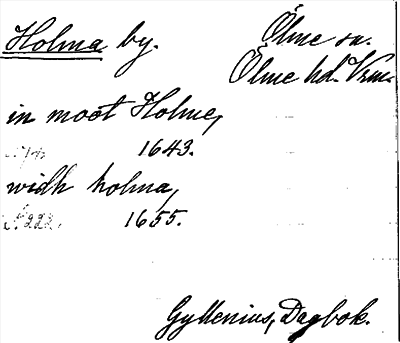 Holma by.
Ölme sn.
Ölme hd. Vrm.
in moot Holme,
1643.
widh holma,
s. 222. 1655.
Gyllenius, Dagbok.